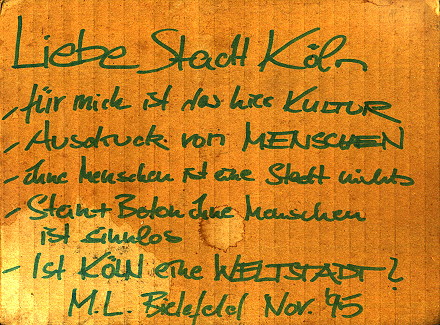 Liebe Stadt Köln
- für mich ist das hier KULTUR
- Ausdruck von MENSCHEN
- ohne Menschen ist eine Stadt nichts
- Stein + Beton ohne Menschen
ist sinnlos
- Ist KÖLN eine WELTSTADT?
M.L. Bielefeld Nov. '95